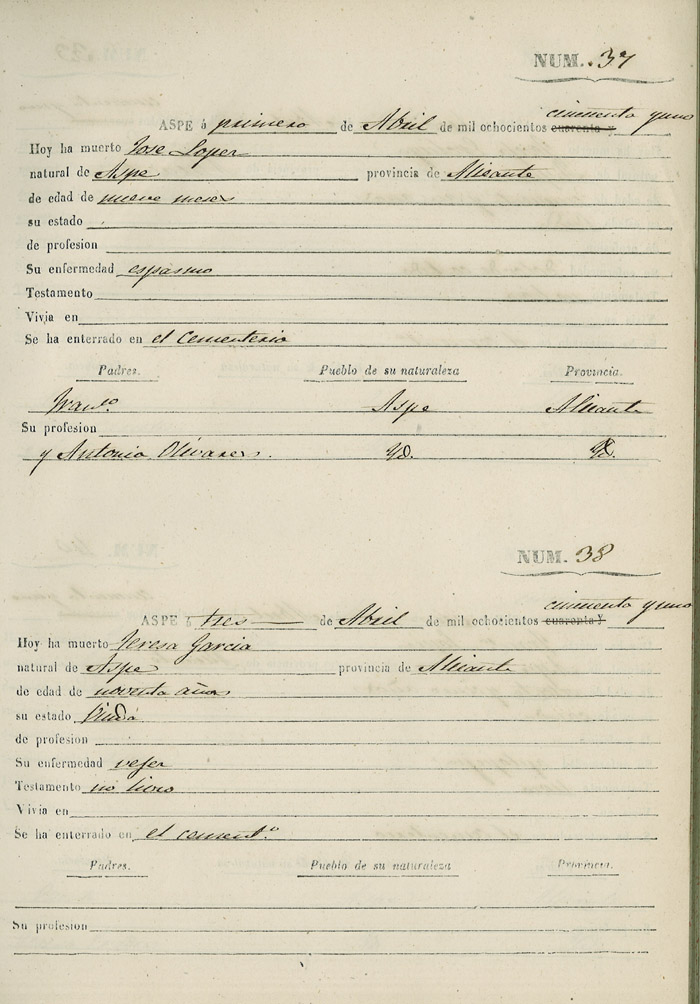 NUM. 37
cincuenta y uno
ASPE á primero de Abril de mil ochocientos cuarenta y
Hoy ha muerto Jose Loper
natural de Aspe provincia de Alicante
de edad de nueve meses
su estado
de profesion
Su enfermedad espasmo
Testamento
Vivia en
Se ha enterrado en el cementerio
Padres. Pueblo de su naturaleza Provincia.
Franco. Aspe Alicante
Su profesion
y Antonia Olivares. Yd. Yd.
NUM. 38
cincuenta y uno
ASPE á tres de Abril de mil ochocientos cuarenta y
Hoy ha muerto Teresa Garcia
natural de Aspe provincia de Alicante
de edad de noventa años
su estado Viuda
de profesion
Su enfermedad vejer
Testamento no hiso
Vivia en
Se ha enterrado en el cementº
Padres. Pueblo de su naturaleza Provincia.
Su profesion